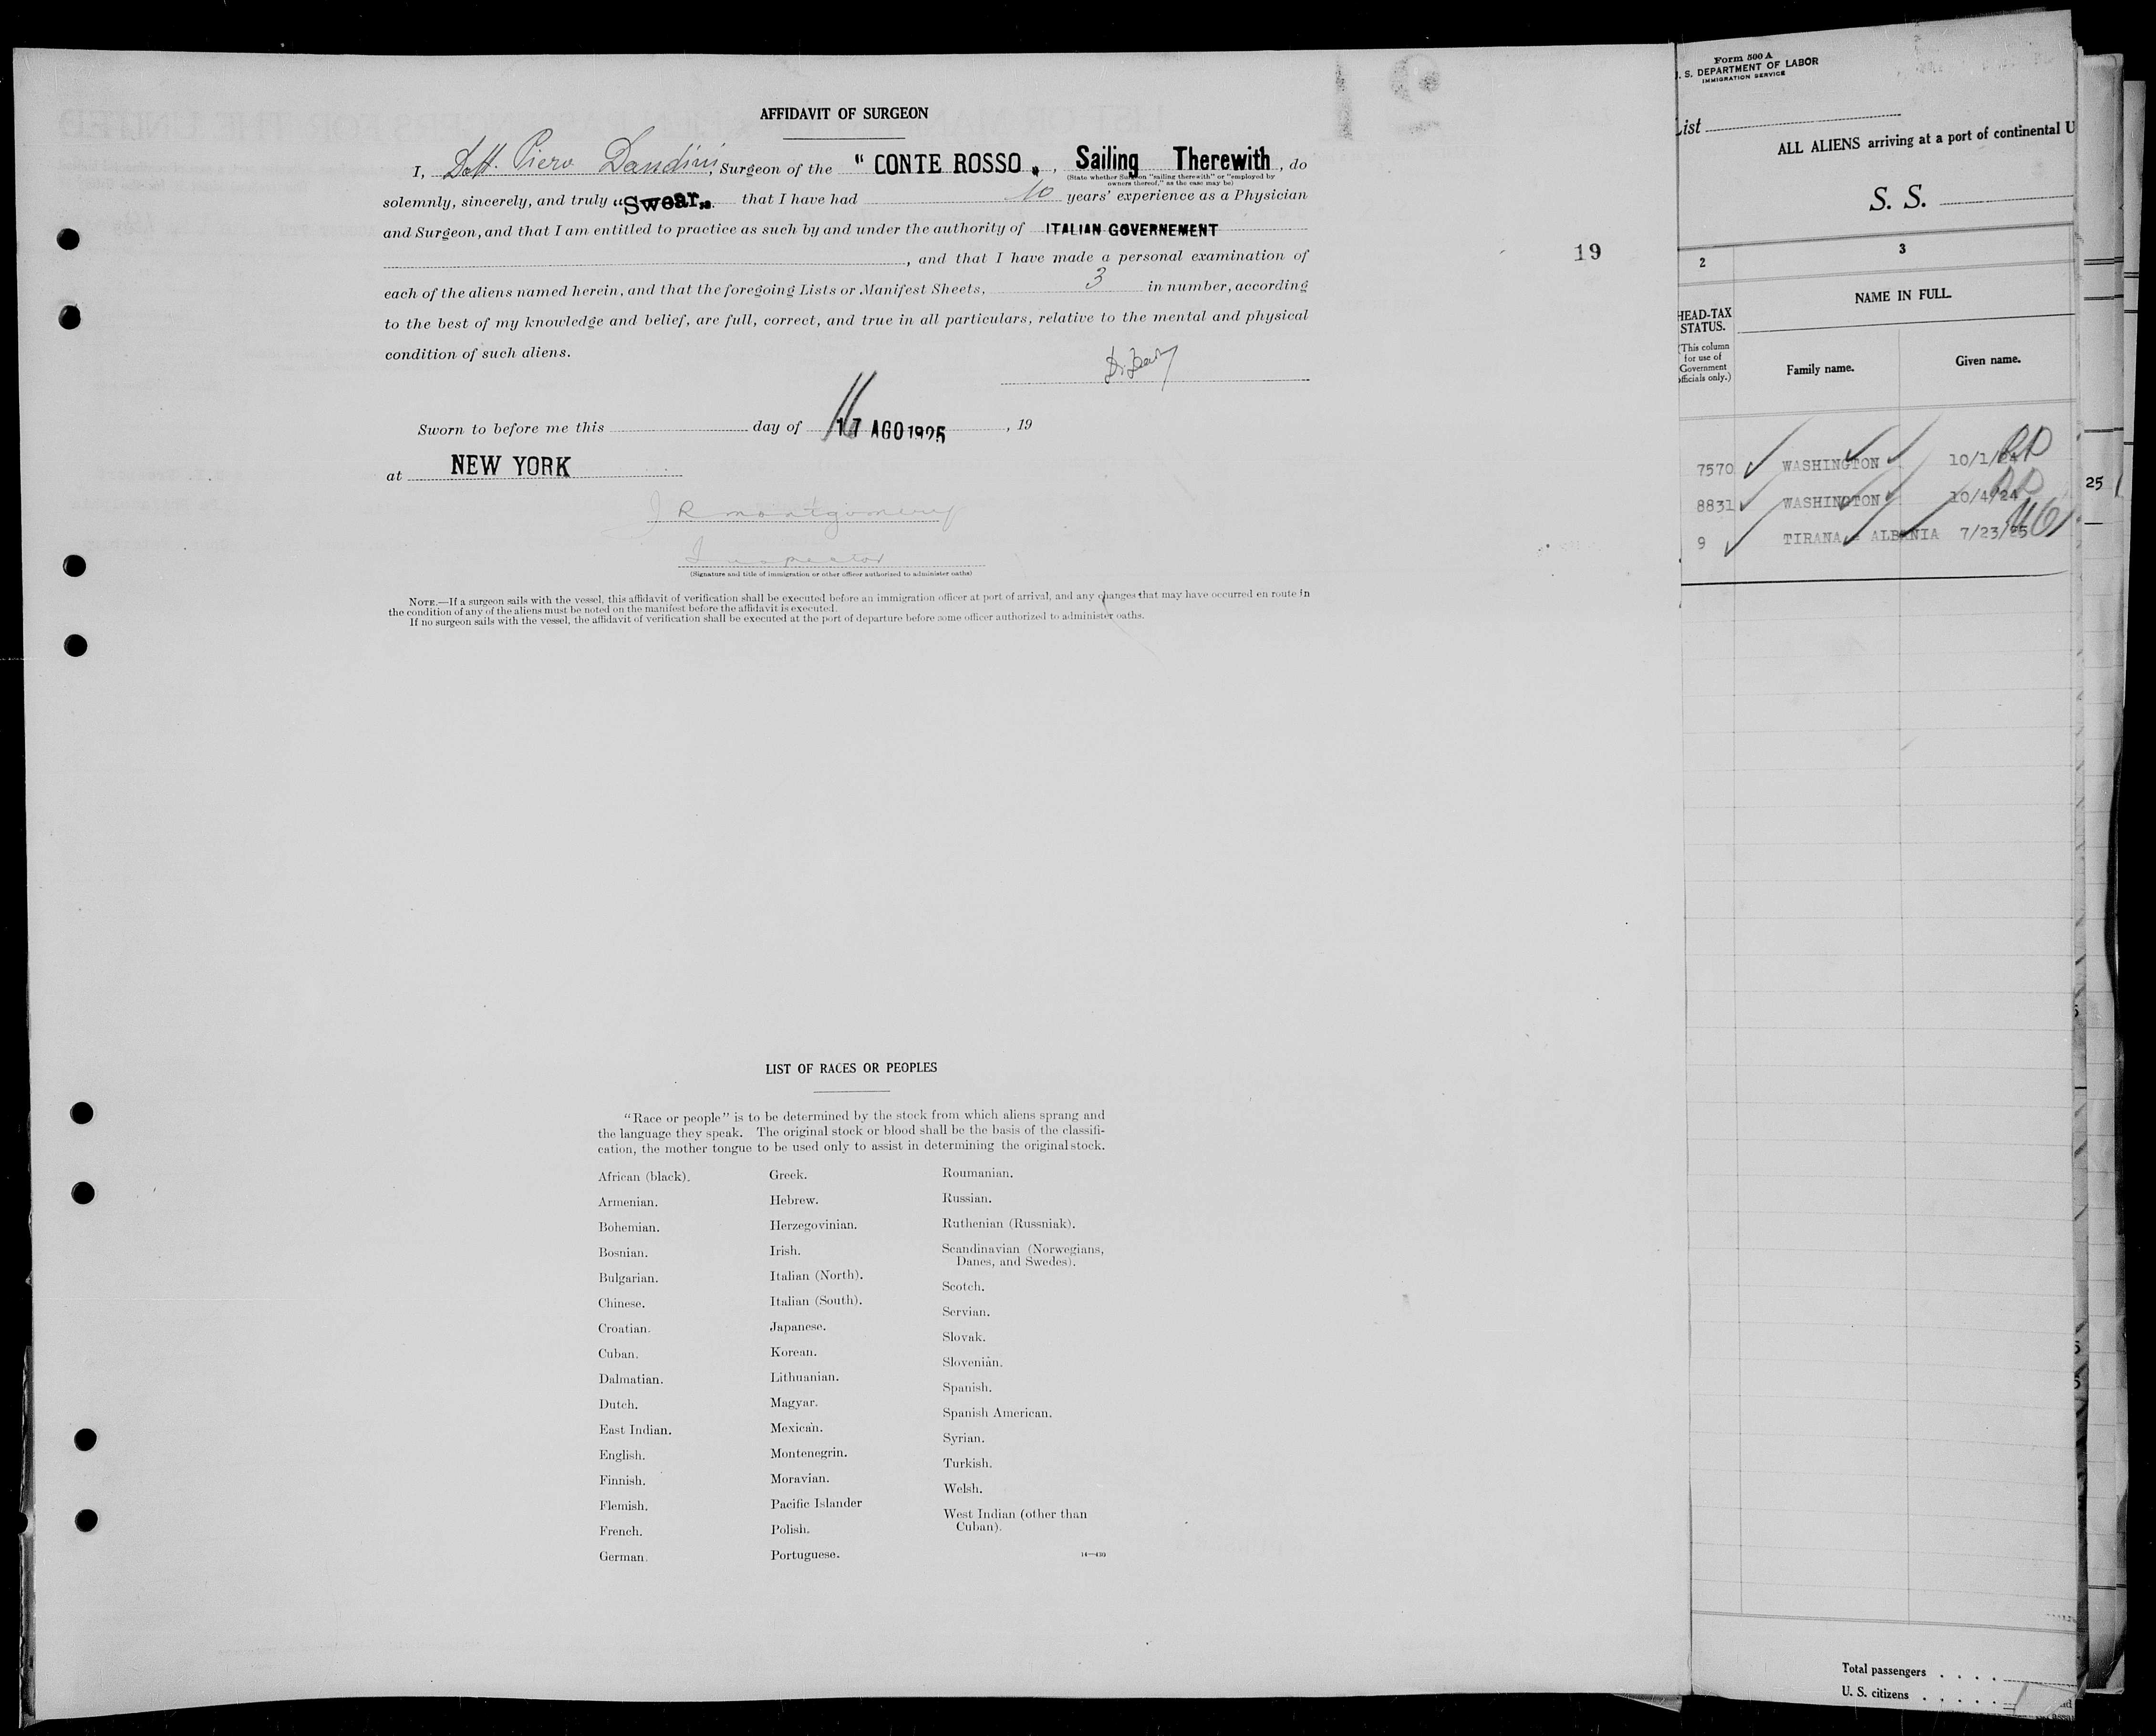 AFFIDAVIT OF SURGEON
I, Dott. Piero Dandini, Surgeon of the " CONTE ROSSO „, Sailing Therewith, do
(State whether Surgeon "sailing therewith" or "employed by
owners thereof," as the case may be)
solemnly, sincerely, and truly “Swear„ that I have had 10 years' experience as a Physician
and Surgeon, and that I am entitled to practice as such by and under the authority of ITALIAN GOVERNEMENT
, and that I have made a personal examination of
each of the aliens named herein, and that the foregoing Lists or Manifest Sheets, 3 in number, according
to the best of my knowledge and belief, are full, correct, and true in all particulars, relative to the mental and physical
condition of such aliens.
Sworn to before me this day of 17 AGO 1925, 19
at NEW YORK
J R Montgomery
Inspector
(Signature and title of immigration or other officer authorized to administer oaths)
NOTE.—If a surgeon sails with the vessel, this affidavit of verification shall be executed before an immigration officer at port of arrival, and any changes that may have occurred en route in
the condition of any of the aliens must be noted on the manifest before the affidavit is executed.
If no surgeon sails with the vessel, the affidavit of verification shall be executed at the port of departure before some officer authorized to administer oaths.
19
LIST OF RACES OR PEOPLES
"Race or people" is to be determined by the stock from which aliens sprang and
the language they speak. The original stock or blood shall be the basis of the classifi-
cation, the mother tongue to be used only to assist in determining the original stock.
African (black).
Armenian.
Bohemian.
Bosnian.
Bulgarian.
Chinese.
Croatian.
Cuban.
Dalmatian.
Dutch.
East Indian.
English.
Finnish.
Flemish.
French.
German.
Greek.
Hebrew.
Herzegovinian.
Irish.
Italian (North).
Italian (South).
Japanese.
Korean.
Lithuanian.
Magyar.
Mexican.
Montenegrin.
Moravian.
Pacific Islander
Polish.
Portuguese.
Roumanian.
Russian.
Ruthenian (Russniak).
Scandinavian (Norwegians,
Danes, and Swedes).
Scotch.
Servian.
Slovak.
Slovenian.
Spanish.
Spanish American.
Syrian.
Turkish.
Welsh.
West Indian (other than
Cuban).
14—430
Form 500 A
. S. DEPARTMENT OF LABOR
IMMIGRATION SERVICE
List
ALL ALIENS arriving at a port of continental U
S. S.
2
3
HEAD-TAX
STATUS.
(This column
for use of
Government
officials only.)
NAME IN FULL.
Family name.
Given name.
7570 WASHINGTON 10/1/24
8831 WASHINGTON 10/4/24
9 TIRANA - ALBANIA 7/23/25
25
Total passengers . . . .
U. S. citizens . . . . .